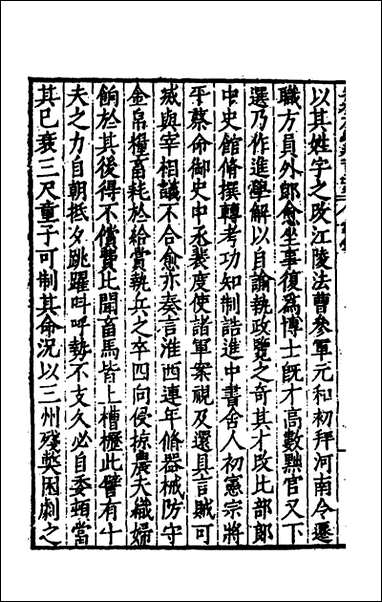 以其姓字之改江陵法曹參軍元和初拜河南令遷
職方員外郎愈坐事復爲博士旣才高數黜官又下
選乃作進學解以自諭執政覽之奇其才改比部郎
中史館修撰轉考功知制誥進中書舍人初憲宗將
平蔡命御史中丞裴度使諸軍案視及還具言賊可
滅與宰相議不合愈亦奏言淮西連年修器械防守
金帛糧畜耗於給賞執兵之卒四向侵掠農夫織婦
餉於其後得不償費比聞畜馬皆上槽櫪此譬有十
夫之力自朝抵夕跳躍叫呼勢不支久必自委頓當
其已衰三尺童子可制其命況以三州殘獘困劇之